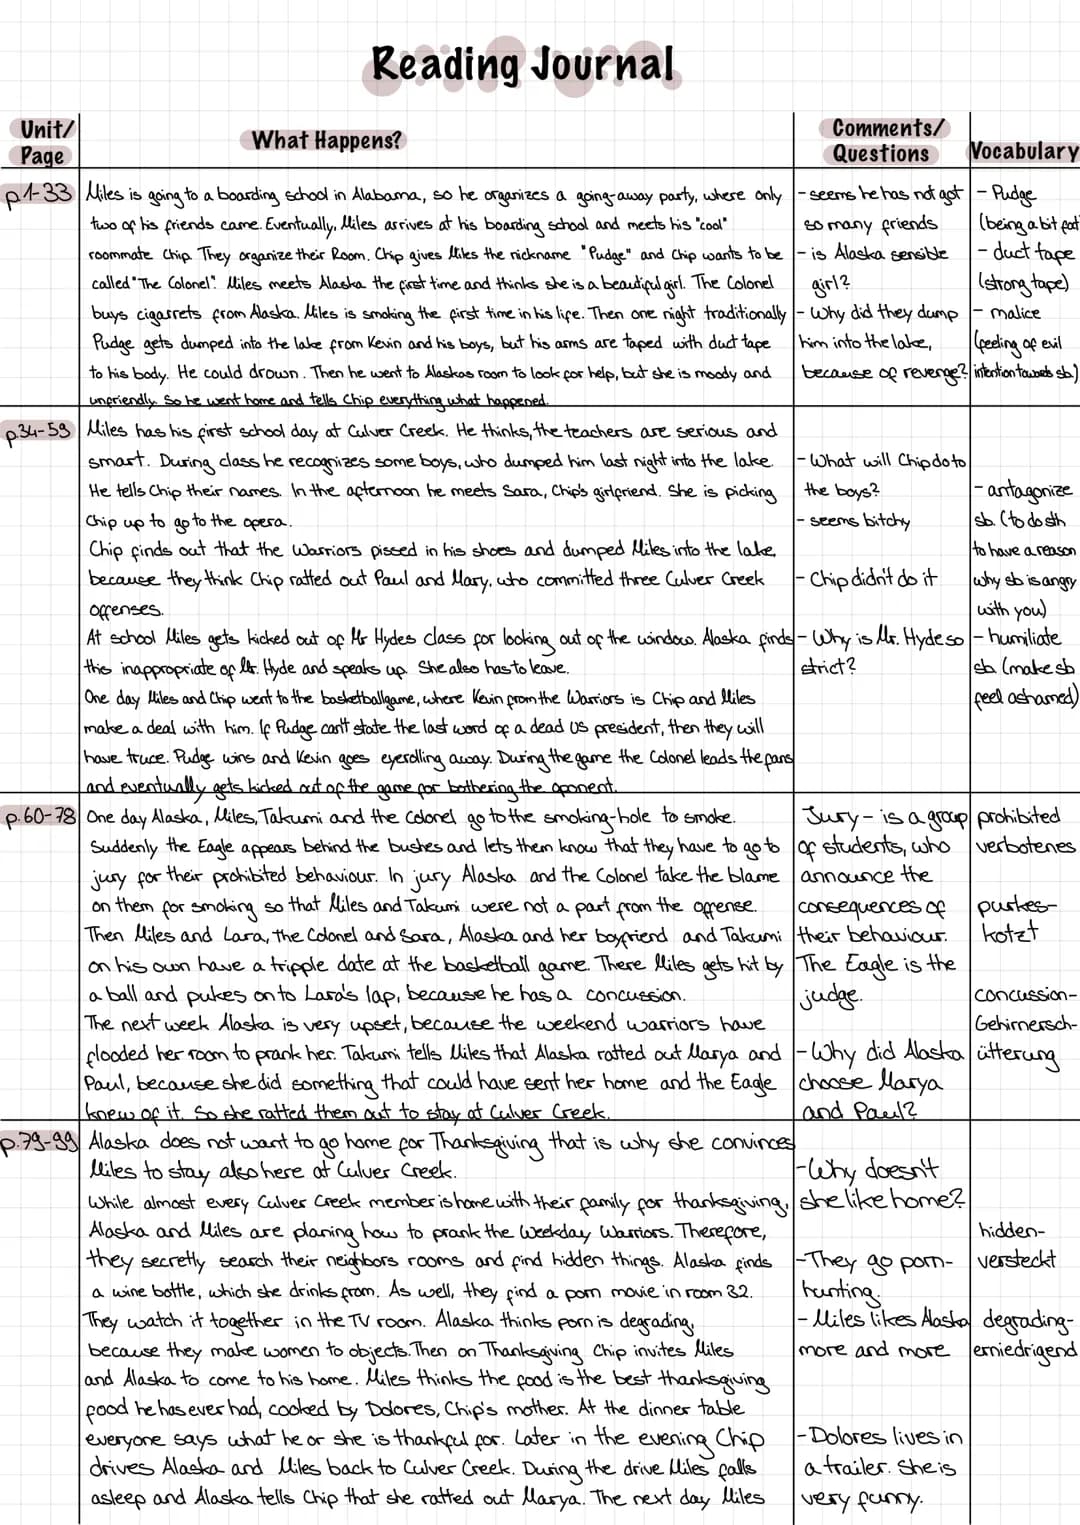 Reading Journal
Unit/
Page
What Happens?
Comments/
Questions
Vocabulary
p.1-33
Miles is going to a boarding school in Alabama, so he organizes a going-away party, where only
two of his friends came. Eventually, Miles arrives at his boarding school and meets his "cool"
roommate Chip. They organize their Room. Chip gives Miles the nickname "Pudge" and Chip wants to be
called "The Colonel". Miles meets Alaska the first time and thinks she is a beautiful girl. The Colonel
buys cigasrets from Alaska. Miles is smoking the first time in his life. Then one night traditionally
Pudge gets dumped into the lake from Kevin and his boys, but his arms are taped with duct tape
to his body. He could drown. Then he went to Alaskas room to look for help, but she is moody and
unfriendly. So he went home and tells Chip everything what happened.
- seems he has not got
so many friends
- is Alaska sensible
girl?
- Why did they dump
him into the lake,
because of revenge?
- Pudge
(being a bit fat
- duct tape
(strong tape)
- malice
(feeling of evil
intention towards sb.)
p.34-59
Miles has his first school day at Culver Creek. He thinks, the teachers are serious and
smart. During class he recognizes some boys, who dumped him last night into the lake.
He tells Chip their names. In the afternoon he meets Sara, Chip's girlfriend. She is picking
Chip up to go to the opera.
Chip finds out that the Warriors pissed in his shoes and dumped Miles into the lake,
because they think Chip ratted out Paul and Mary, who committed three Culver Creek
offenses.
At school Miles gets kicked out of Mr Hydes class for looking out of the window. Alaska finds
this inappropriate of Mr. Hyde and speaks up. She also has to leave.
One day Miles and Chip went to the basketballgame, where Kevin from the Warriors is. Chip and Miles
make a deal with him. If Pudge can't state the last word of a dead US president, then they will
have truce. Pudge wins and Kevin goes eyerolling away. During the game the Colonel leads the fans
and eventually gets kicked out of the game for bothering the oponent.
- What will Chip do to
the boys?
- seems bitchy
- Chip didn't do it
- Why is Mr. Hyde so
strict?
- antagonize
sb. (to do sth
to have a reason
why sb is angry
with you)
- humiliate
sb. (make sb
feel ashamed)
p.60-78
One day Alaska, Miles, Takumi and the Colonel go to the smoking-hole to smoke.
Suddenly the Eagle appears behind the bushes and lets them know that they have to go to
jury for their prohibited behaviour. In jury Alaska and the Colonel take the blame
on them for smoking so that Miles and Takumi were not a part from the offense.
Then Miles and Lara, the Colonel and Sara, Alaska and her boyfriend and Takumi
on his own have a tripple date at the basketball game. There Miles gets hit by
a ball and pukes onto Lara's lap, because he has a concussion.
The next week Alaska is very upset, because the weekend warriors have
flooded her room to prank her. Takumi tells Miles that Alaska ratted out Marya and
Paul, because she did something that could have sent her home and the Eagle
knew of it. So she ratted them out to stay at Culver Creek.
Jury - is a group
of students, who
announce the
consequences of
their behaviour.
The Eagle is the
judge.
- Why did Alaska
choose Marya
and Paul?
prohibited
verbotenes
puskes-
kotzt
concussion-
Gehirnersch-
ütterung
p.79-99
Alaska does not want to go home for Thanksgiving that is why she convinces
Miles to stay also here at Culver Creek.
While almost every Culver Creek member is home with their family for thanksgiving,
Alaska and Miles are planing how to prank the Weekday Warriors. Therefore,
they secretly search their neighbors rooms and find hidden things. Alaska finds
a wine bottle, which she drinks from. As well, they find a porn movie in room 32.
They watch it together in the TV room. Alaska thinks porn is degrading,
because they make women to objects. Then on Thanksgiving Chip invites Miles
and Alaska to come to his home. Miles thinks the food is the best thanksgiving
food he has ever had, cooked by Dolores, Chip's mother. At the dinner table
everyone says what he or she is thankful for. Later in the evening Chip
drives Alaska and Miles back to Culver Creek. During the drive Miles falls
asleep and Alaska tells Chip that she ratted out Marya. The next day Miles
- Why doesn't
she like home?
- They go porn-
hunting.
- Miles likes Alaska
more and more
- Dolores lives in
a trailer. She is
very funny.
hidden-
versteckt
degrading-
erniedrigend